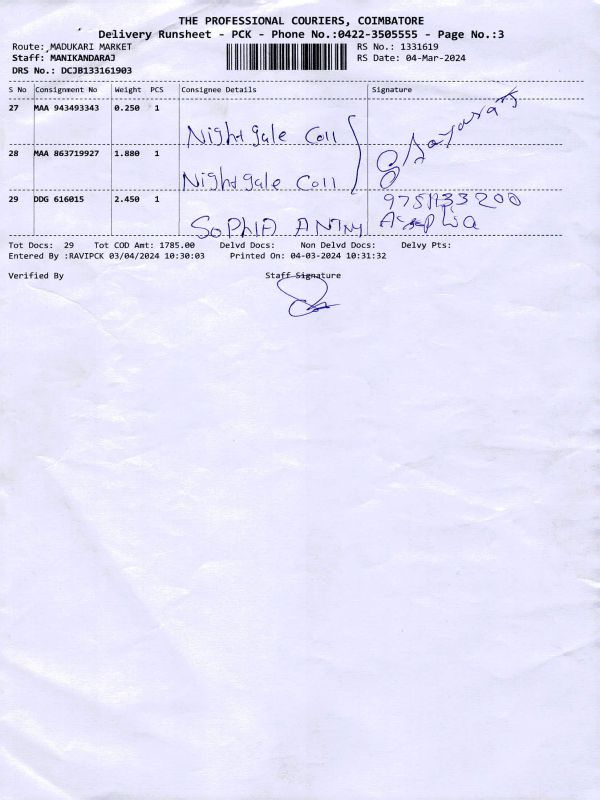 THE PROFESSIONAL COURIERS, COIMBATORE
Delivery Runsheet - PCK - Phone No.:0422-3505555 - Page No.:3
Route: MADUKARI MARKET RS No.: 1331619
Staff: MANIKANDARAJ RS Date: 04-Mar-2024
DRS No.: DCJB133161903
S No Consignment No Weight PCS Consignee Details Signature
27 MAA 943493343 0.250 1
Nightgale Coll
28 MAA 863719927 1.880 1
Nightgale Coll
29 DDG 616015 2.450 1
SOPHIA ANTNY
Tot Docs: 29 Tot COD Amt: 1785.00 Delvd Docs: Non Delvd Docs: Delvy Pts:
Entered By :RAVIPCK 03/04/2024 10:30:03 Printed On: 04-03-2024 10:31:32
Verified By Staff Signature